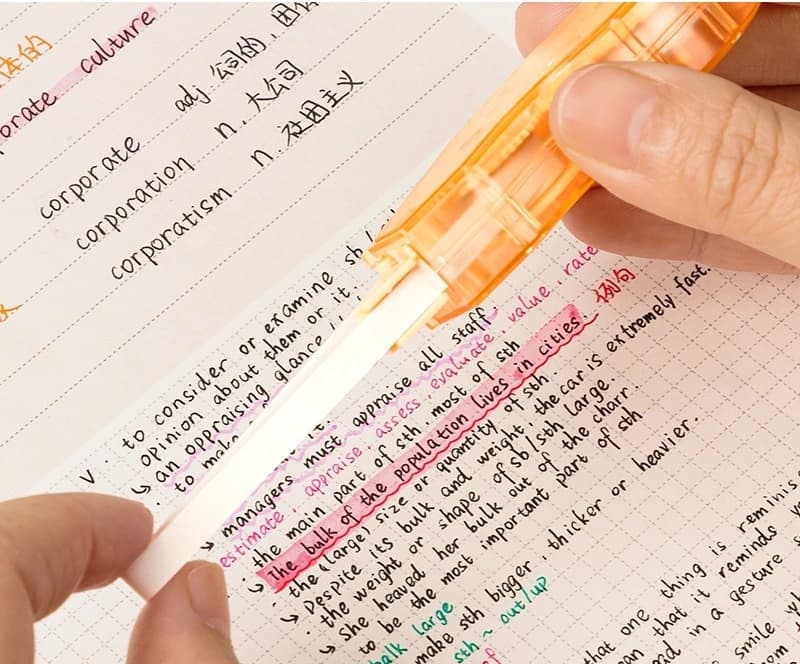 体的
orate culture
corporate adj 公司的, 团
corporation n. 大公司
corporatism n. 社团主义
V. to consider or examine sb /
opinion about them or it.
an appraising glance
to make
managers must appraise all staff
estimate, appraise, assess, evaluate, value, rate
the main part of sth, most of sth
The bulk of the population lives in cities 例句
the (large) size or quantity of sth
Despite its bulk and weight, the car is extremely fast.
the weight or shape of sb/sth large.
She heaved her bulk out of the charr.
to be the most important part of sth
make sth bigger, thicker or heavier.
sth ~ out/up
large
that one thing is reminis
that it reminds
in a gesture
smile